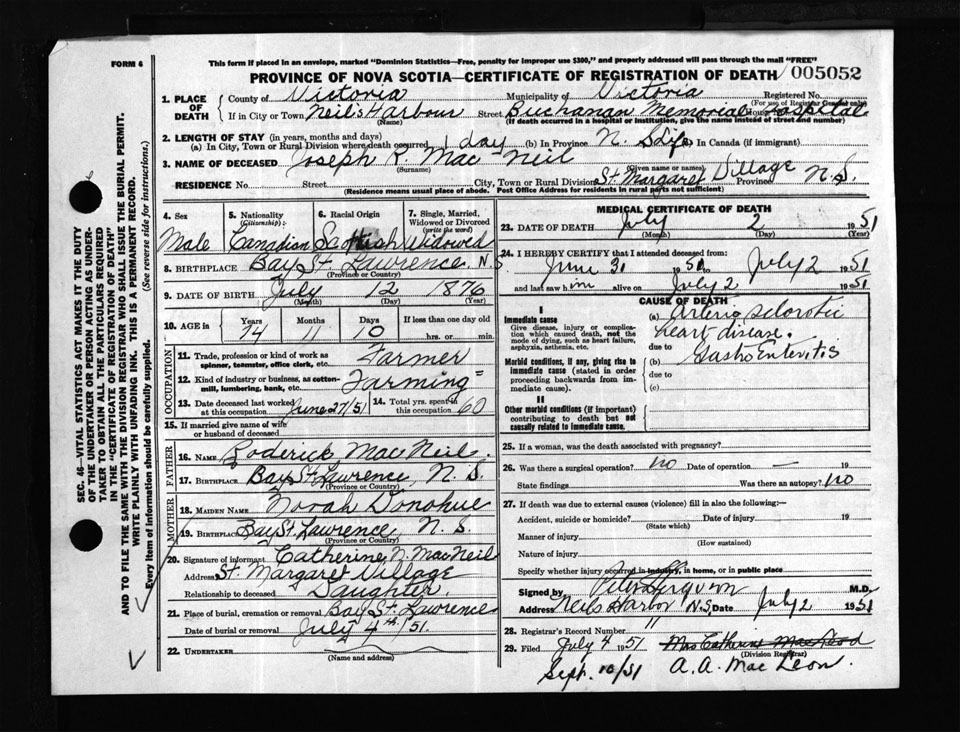 This form if placed in an envelope, marked "Dominion Statistics—Free, penalty for improper use $300," and properly addressed will pass through the mail "FREE"
FORM 6
PROVINCE OF NOVA SCOTIA—CERTIFICATE OF REGISTRATION OF DEATH
005052
1. PLACE OF DEATH
County of Victoria Municipality of Victoria Registered No.
(For use of Registrar General only)
If in City or Town Neil's Harbour Street Buchanan Memorial Hospital
(Name) (If death occurred in a hospital or institution, give the name instead of street and number)
2. LENGTH OF STAY (in years, months and days)
(a) In City, Town or Rural Division where death occurred 1 day (b) In Province N. S. Life (c) In Canada (if immigrant)
3. NAME OF DECEASED Joseph R. MacNeil
(Surname) (Given name or names)
RESIDENCE No. Street City, Town or Rural Division St. Margaret Village Province N.S.
(Residence means usual place of abode. Post Office Address for residents in rural parts not sufficient)
4. Sex Male
5. Nationality (Citizenship) Canadian
6. Racial Origin Scottish
7. Single, Married, Widowed or Divorced (write the word) Widowed
8. BIRTHPLACE Bay St. Lawrence N.S.
(Province or Country)
9. DATE OF BIRTH July 12 1876
(Month) (Day) (Year)
10. AGE in Years Months Days If less than one day old
74 11 10 hrs. or min.
OCCUPATION
11. Trade, profession or kind of work as spinner, teamster, office clerk, etc. Farmer
12. Kind of industry or business, as cotton-mill, lumbering, bank, etc. Farming
13. Date deceased last worked at this occupation June 27/51
14. Total yrs. spent in this occupation 60
15. If married give name of wife or husband of deceased
FATHER
16. NAME Roderick MacNeil.
17. BIRTHPLACE Bay St Lawrence, N. S.
(Province or Country)
MOTHER
18. MAIDEN NAME Norah Donohue
19. BIRTHPLACE Bay St. Lawrence N. S.
(Province or Country)
20. Signature of informant Catherine N. MacNeil
Address St. Margaret Village
Relationship to deceased Daughter
21. Place of burial, cremation or removal Bay St. Lawrence
Date of burial or removal July 4th/51.
22. UNDERTAKER
(Name and address)
MEDICAL CERTIFICATE OF DEATH
23. DATE OF DEATH July 2 1951
(Month) (Day) (Year)
24. I HEREBY CERTIFY that I attended deceased from:
June 31 1951 to July 2 1951
and last saw him alive on July 2 1951
CAUSE OF DEATH
I
Immediate cause
Give disease, injury or complication which caused death, not the mode of dying, such as heart failure, asphyxia, asthenia, etc.
(a) Arterio sclerotic heart disease.
due to
Morbid conditions, if any, giving rise to immediate cause (stated in order proceeding backwards from immediate cause).
(b) Gastro Enteritis
due to
(c)
II
Other morbid conditions (if important) contributing to death but not causally related to immediate cause.
25. If a woman, was the death associated with pregnancy?
26. Was there a surgical operation? no Date of operation — 19
State findings Was there an autopsy? no
27. If death was due to external causes (violence) fill in also the following:—
Accident, suicide or homicide? Date of injury 19
(State which)
Manner of injury
(How sustained)
Nature of injury
Specify whether injury occurred in industry, in home, or in public place
Signed by M.D.
Address Neils Harbor N.S. Date July 2 1951
28. Registrar's Record Number 11
29. Filed July 4 1951 Mrs Catherine
(Division Registrar)
Sept. 10/51 A. A. Mac Leon.
SEC. 46—VITAL STATISTICS ACT MAKES IT THE DUTY
OF THE UNDERTAKER OR PERSON ACTING AS UNDER-
TAKER TO OBTAIN ALL THE PARTICULARS REQUIRED
IN THE "CERTIFICATE OF REGISTRATION OF DEATH"
AND TO FILE THE SAME WITH THE DIVISION REGISTRAR WHO SHALL ISSUE THE BURIAL PERMIT.
WRITE PLAINLY WITH UNFADING INK. THIS IS A PERMANENT RECORD.
Every item of information should be carefully supplied. (See reverse side for instructions.)